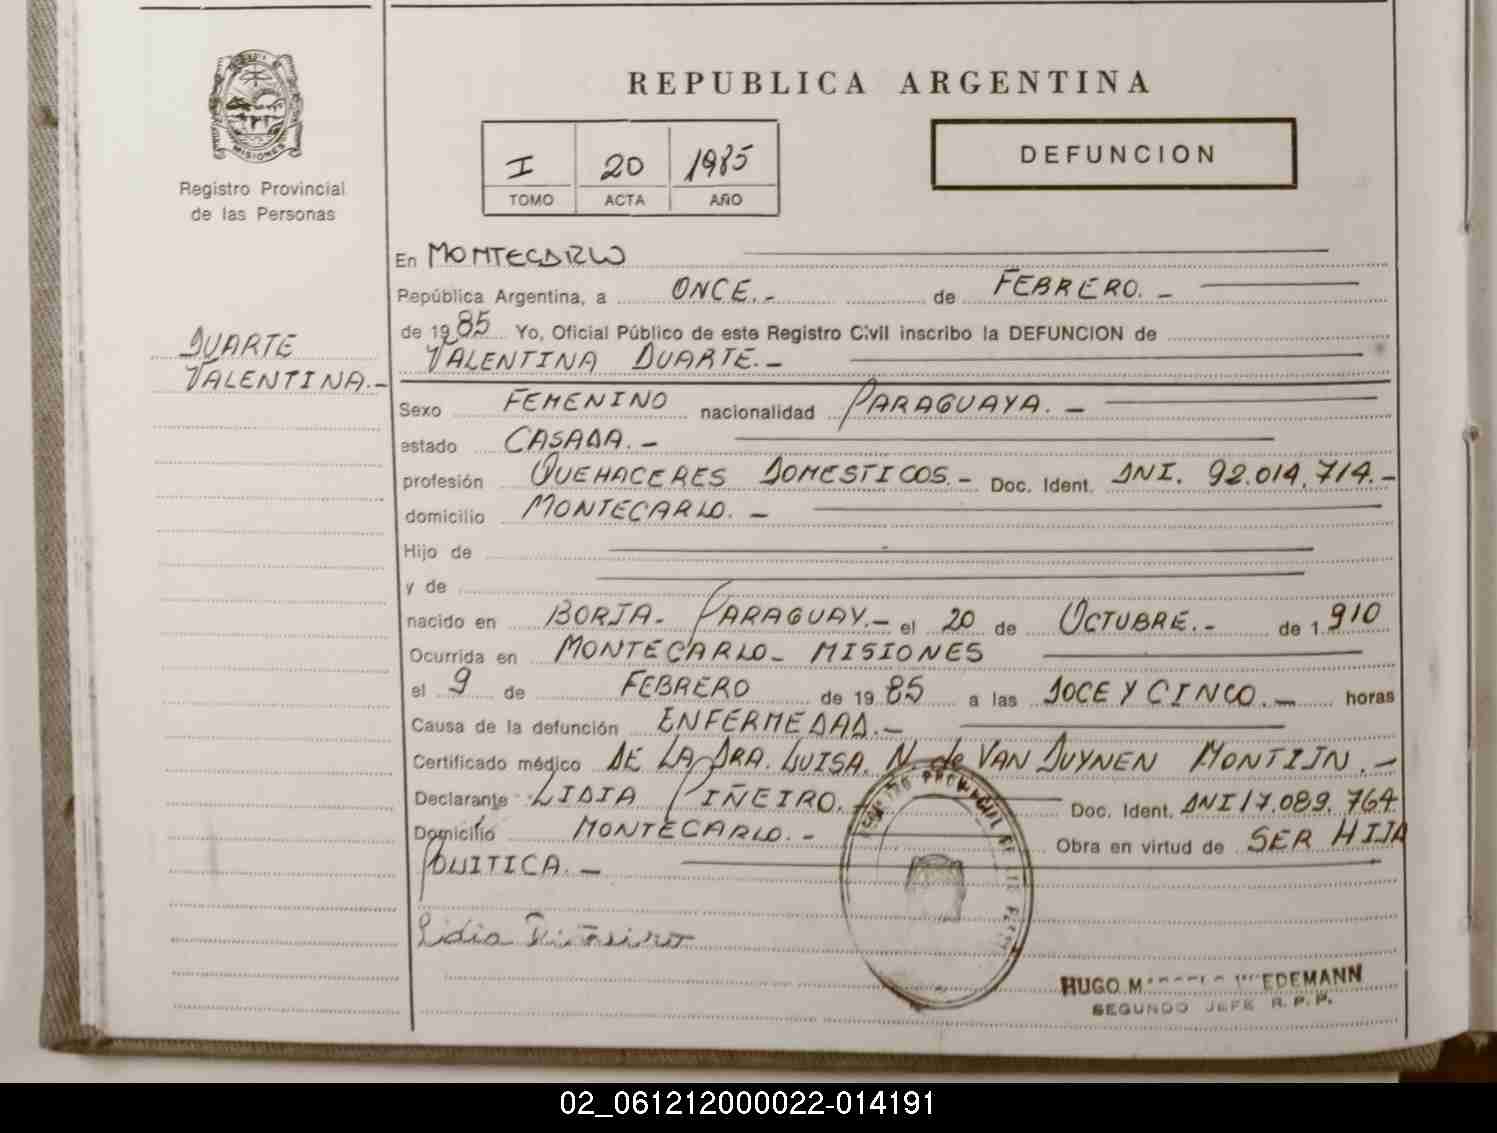 MISIONES
Registro Provincial
de las Personas
DUARTE
VALENTINA.-
REPUBLICA ARGENTINA
I 20 1985
TOMO ACTA AÑO
DEFUNCION
En MONTECARLO
República Argentina, a ONCE.- de FEBRERO.-
de 1985 Yo, Oficial Público de este Registro Civil inscribo la DEFUNCION de
VALENTINA DUARTE.-
Sexo FEMENINO nacionalidad PARAGUAYA.-
estado CASADA.-
profesión QUEHACERES DOMESTICOS.- Doc. Ident. DNI. 92.014.714.-
domicilio MONTECARLO.-
Hijo de
y de
nacido en BORJA- PARAGUAY.- el 20 de OCTUBRE.- de 1.910
Ocurrida en MONTECARLO- MISIONES
el 9 de FEBRERO de 1985 a las DOCE Y CINCO.- horas
Causa de la defunción ENFERMEDAD.-
Certificado médico DE LA DRA. LUISA. N. de VAN DUYNEN MONTIJN.-
Declarante LIDIA PIÑEIRO.- Doc. Ident. DNI 17.089.764.
Domicilio MONTECARLO.- Obra en virtud de SER HIJA
POLITICA.-
Lidia Piñeiro
HUGO M WIEDEMANN
SEGUNDO JEFE R.P.P.
02_061212000022-014191